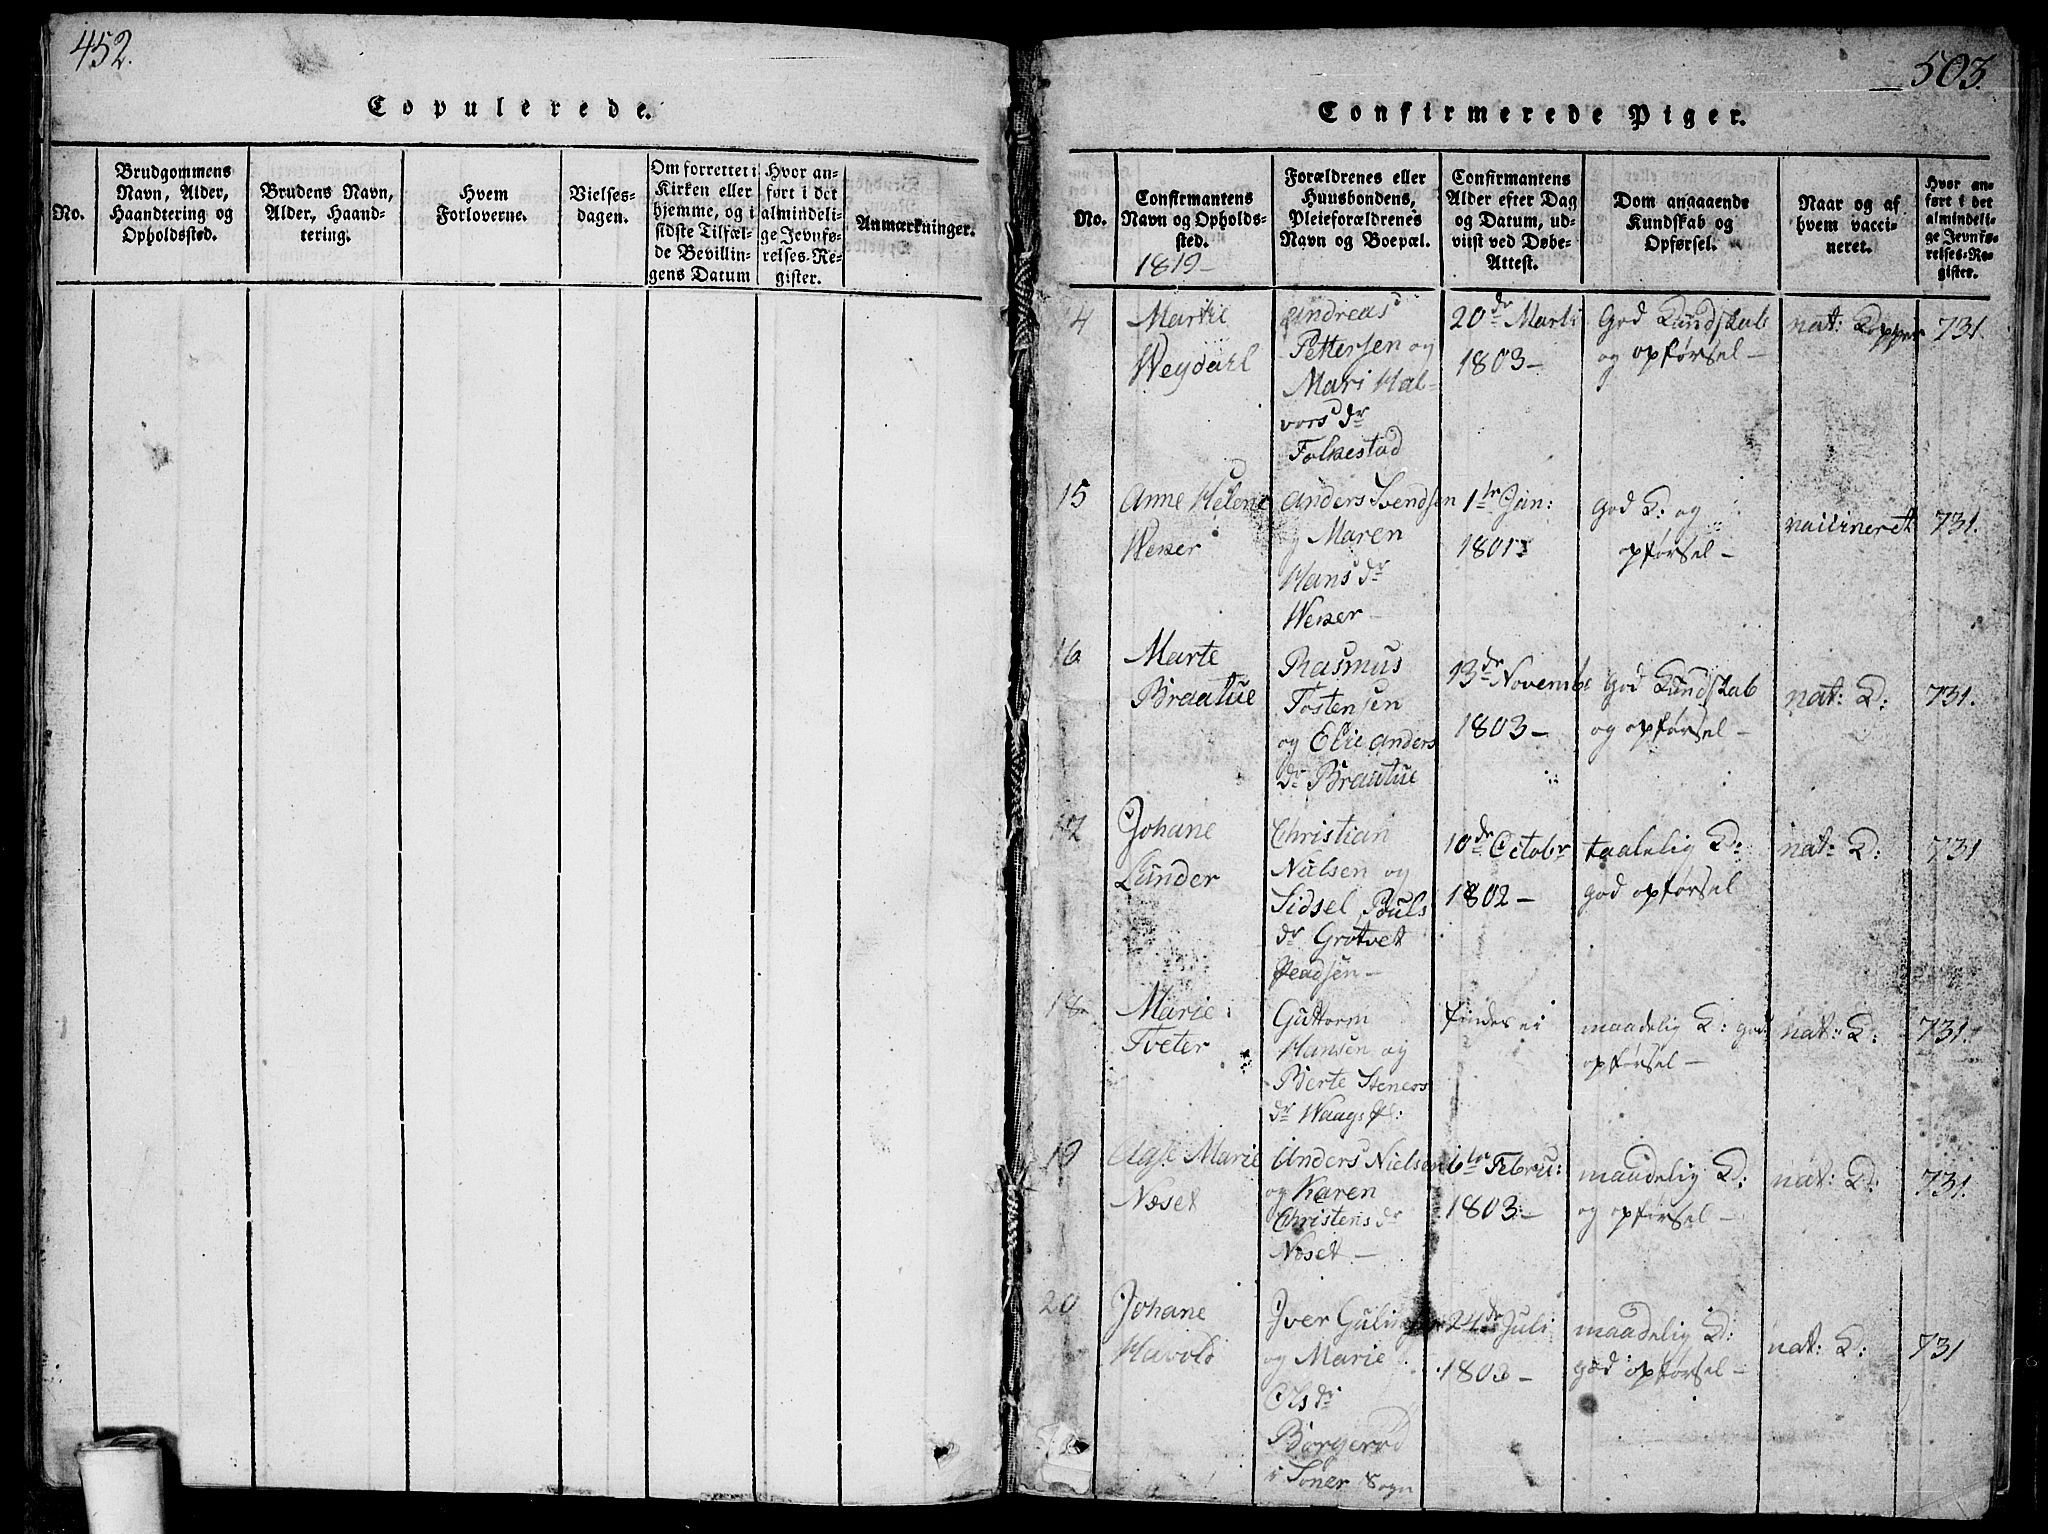 452.
Copulerede.
No.
Brudgommens
Navn, Alder,
Haandtering og
Opholdssted.
Brudens Navn,
Alder, Haand-
tering.
Hvem
Forloverne.
Vielses-
dagen.
Om forrettet i
Kirken eller
hjemme, og i
sidste Tilfæl-
de Bevillin-
gens Datum
Hvor an-
ført i det
almindeli-
ge Jevnfø-
relses-Re-
gister.
Anmærkninger.
503.
Confirmerede Piger.
No.
Confirmantens
Navn og Opholds-
sted.
1819-
Forældrenes eller
Huusbondens,
Pleieforældrenes
Navn og Boepæl.
Confirmantens
Alder efter Dag
og Datum, ud-
viist ved Døbe-
Attest.
Dom angaaende
Kundskab og
Opførsel.
Naar og af
hvem vacci-
neret.
Hvor an-
ført i det
almindeli-
ge Jevnfø-
relses-Re-
gister.
14
Marthe
Wegdahl
Andreas
Pettersen og
Mari Hal-
vors dr
Folkestad
20de Marti
1803-
God Kundskab
og opførsel-
nat: Kopper
731.
15
Anne Helene
Weker
Anders Svendsen
og Maren
Hans dr
Weker-
1te Jan:
1801
God K: og
opførsel-
vaccineret
731.
16
Marte
Braatue
Rasmus
Tostensen
og Elie Anders
dr Braatue
13de Novembr
1803-
God Kundskab
og opførsel-
nat: K:
731.
17
Johane
Lunder
Christian
Nielsen og
Sidsel Pouls
dr Grotvet
10de Octobr
1802-
taalelig K:
god opførsel
nat: K:
731
18
Marie
Tveter
Guttorm
Hansen og
Berte Steners
dr Waags pl:
findes ei
maadelig K: god
opførsel-
nat: K:
731.
19
Aase Marie
Næset
Anders Nielsen
og Karen
Christens dr
Næset-
6te Febru:
1803-
maadelig K:
og opførsel-
nat: K:
731.
20
Johane
Havold
Iver
og Marie
Ols dr
Borgerød
i Soner Sogn
24de Juli
1803-
maadelig K:
god opførsel-
nat: K:
731